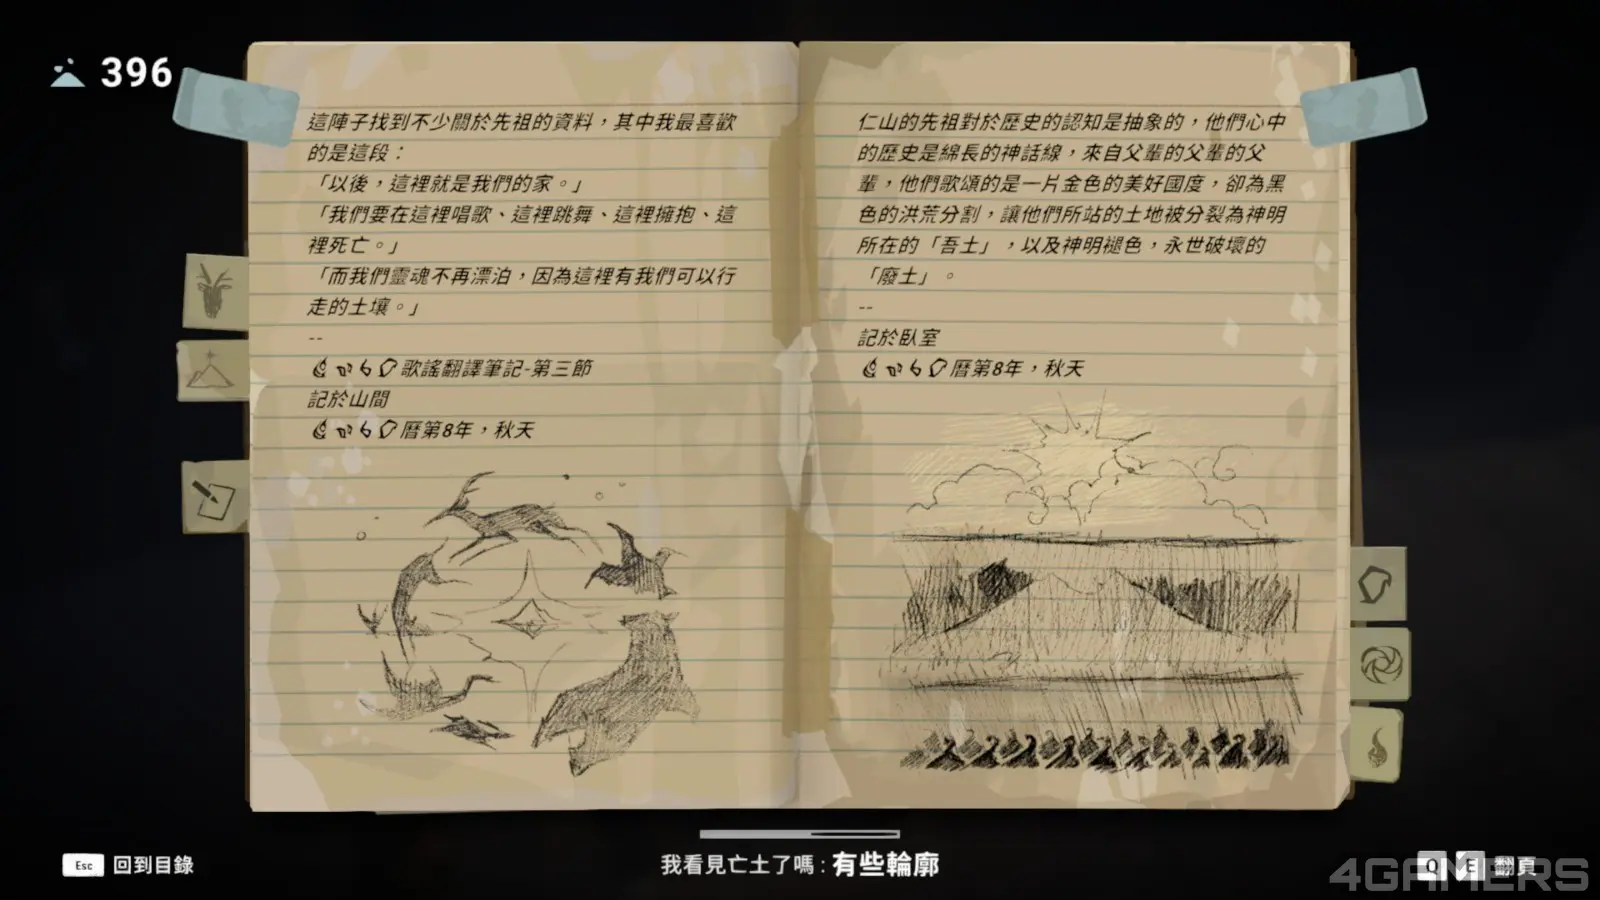 396
這陣子找到不少關於先祖的資料，其中我最喜歡
的是這段：
「以後，這裡就是我們的家。」
「我們要在這裡唱歌、這裡跳舞、這裡擁抱、這
裡死亡。」
「而我們靈魂不再漂泊，因為這裡有我們可以行
走的土壤。」
--
歌謠翻譯筆記-第三節
記於山間
曆第8年，秋天
仁山的先祖對於歷史的認知是抽象的，他們心中
的歷史是綿長的神話線，來自父輩的父輩的父
輩，他們歌頌的是一片金色的美好國度，卻為黑
色的洪荒分割，讓他們所站的土地被分裂為神明
所在的「吾土」，以及神明褪色，永世破壞的
「廢土」。
--
記於臥室
曆第8年，秋天
Esc 回到目錄
我看見亡土了嗎：有些輪廓
Q E 翻頁
4GAMERS